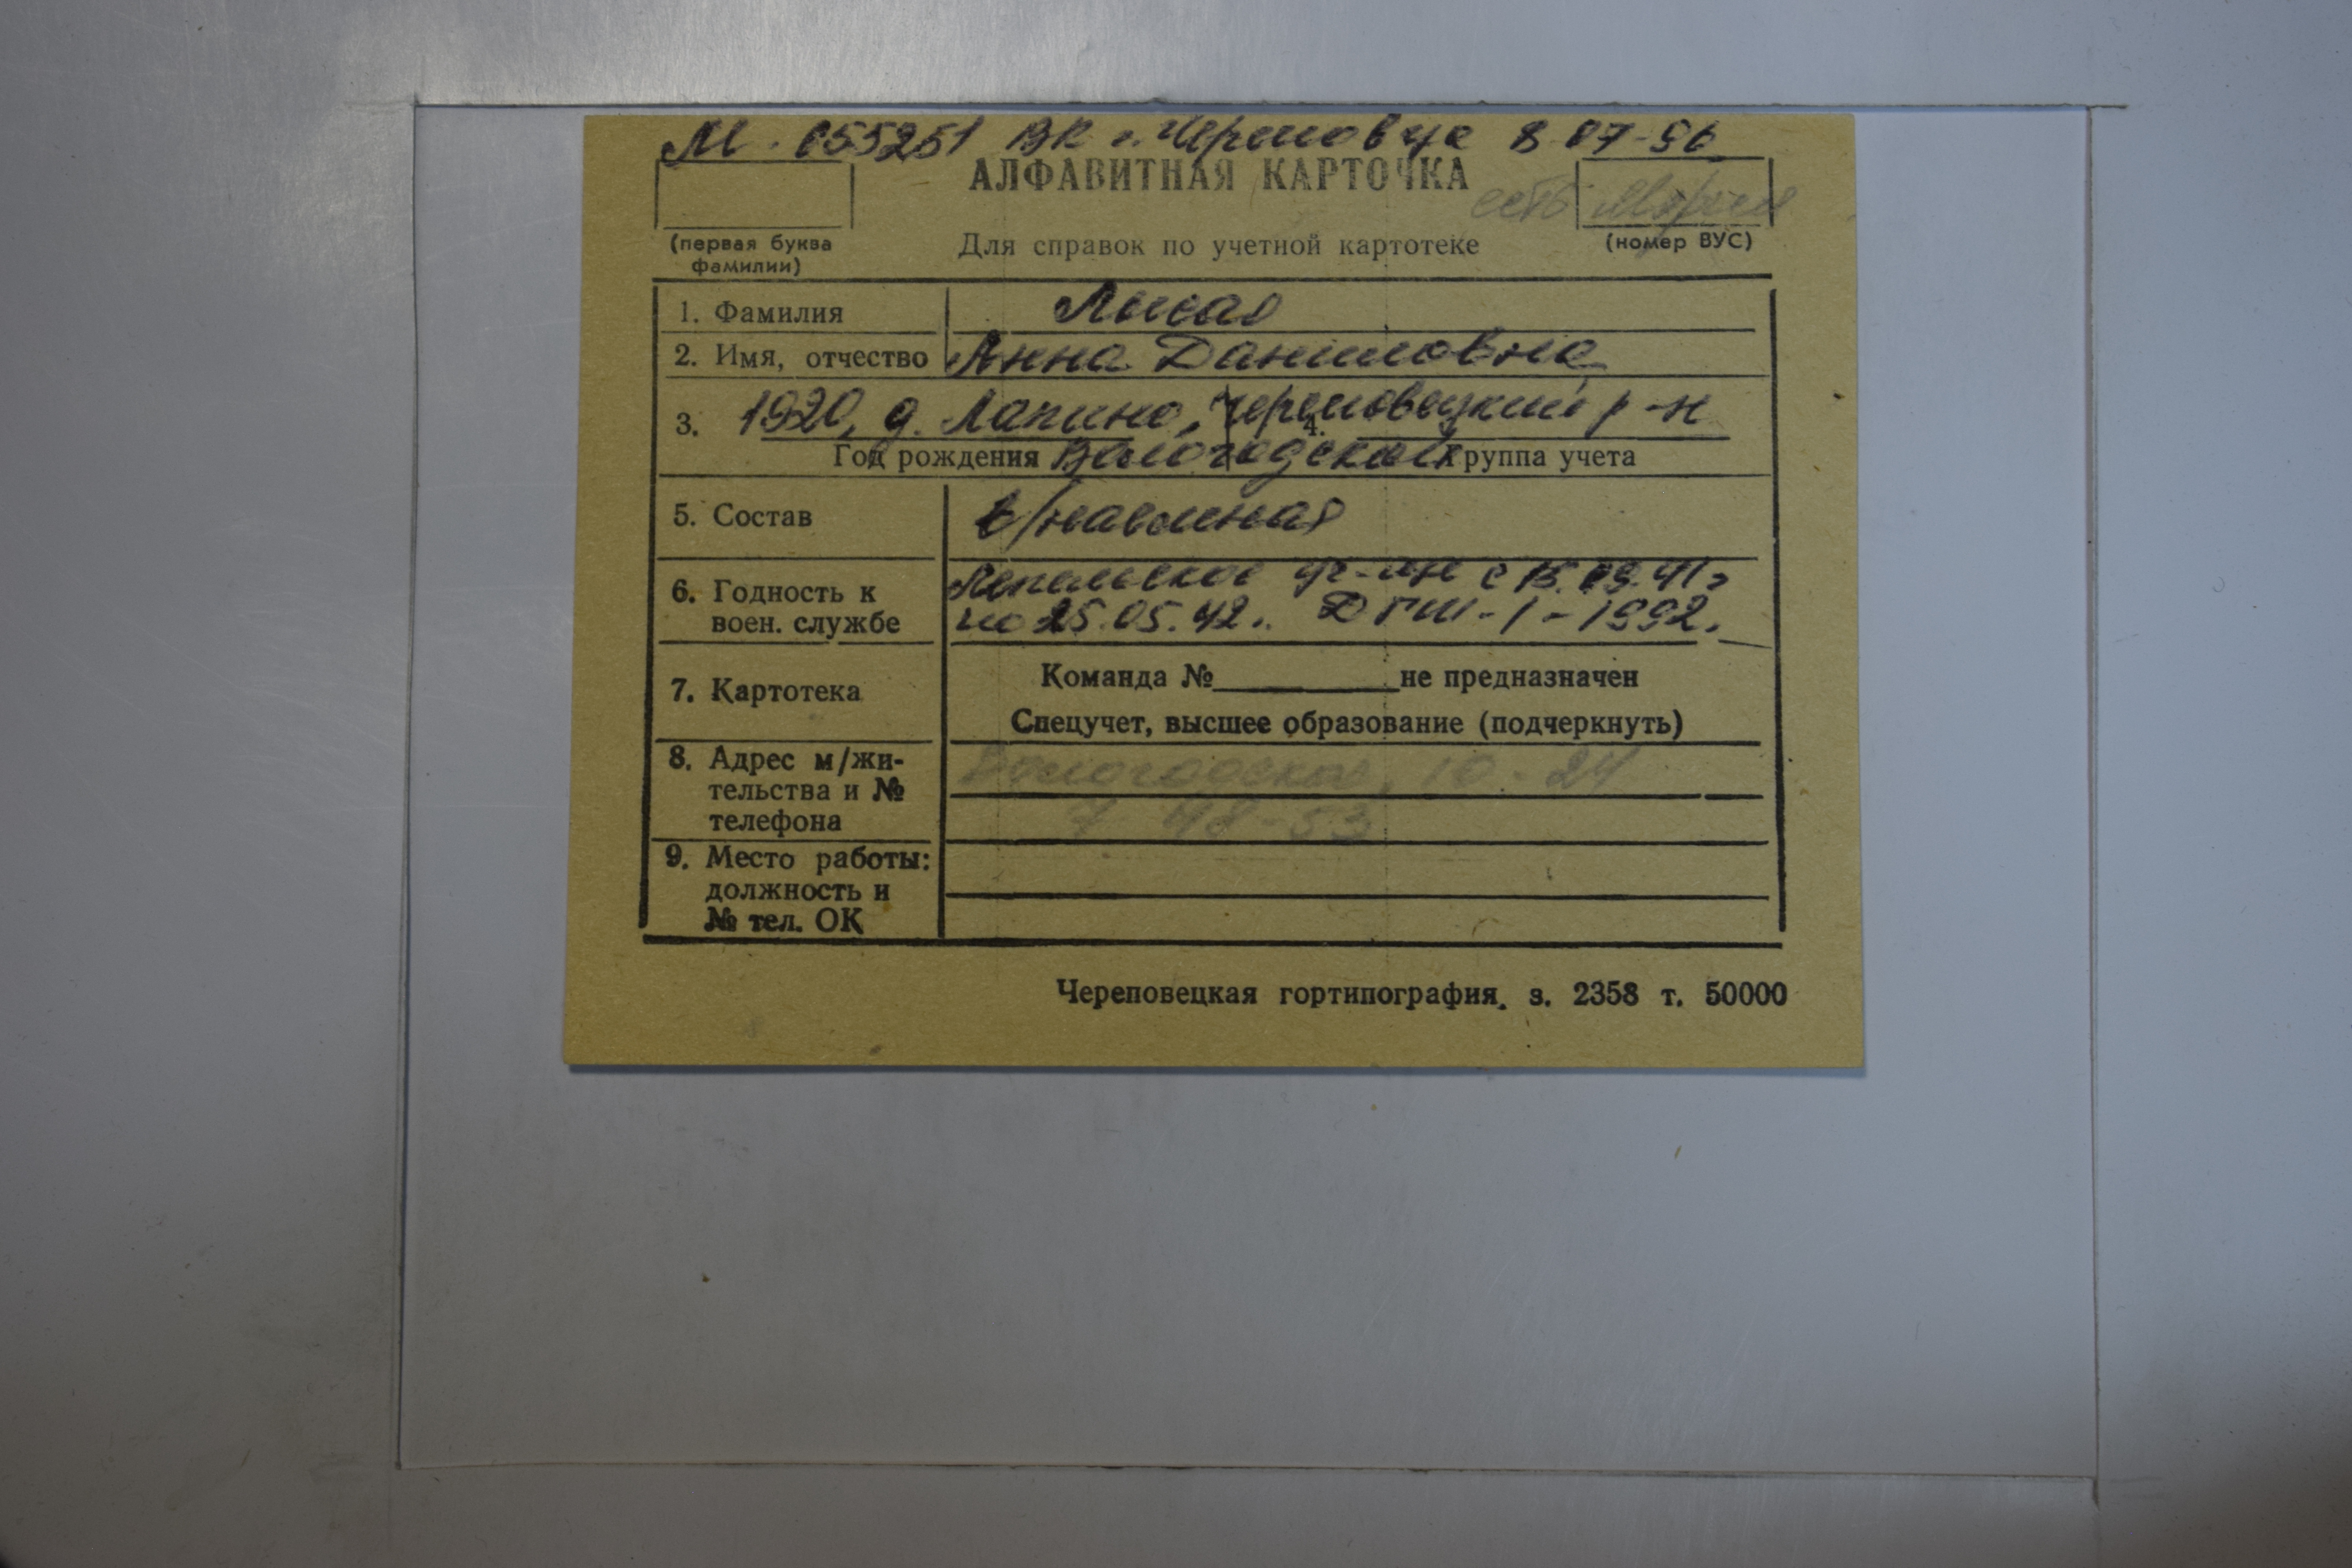 М. 055251 ВК г. Череповца 8.07.96
АЛФАВИТНАЯ КАРТОЧКА
есть
(первая буква фамилии)
Для справок по учетной картотеке
(номер ВУС)
1. Фамилия Лысая
2. Имя, отчество Анна Даниловна
3. 1920, д. Лапино, Череповецкий р-н 4.
Год рождения Вологодской Группа учета
5. Состав в/наемная
6. Годность к с 15.09.41г
воен. службе по 25.05.42. ДГШ-1-1992.
7. Картотека Команда № не предназначен
Спецучет, высшее образование (подчеркнуть)
8. Адрес м/жи- Вологодская, 10-24
тельства и №
телефона 7-48-53
9. Место работы:
должность и
№ тел. ОК
Череповецкая гортипография. з. 2358 т. 50000